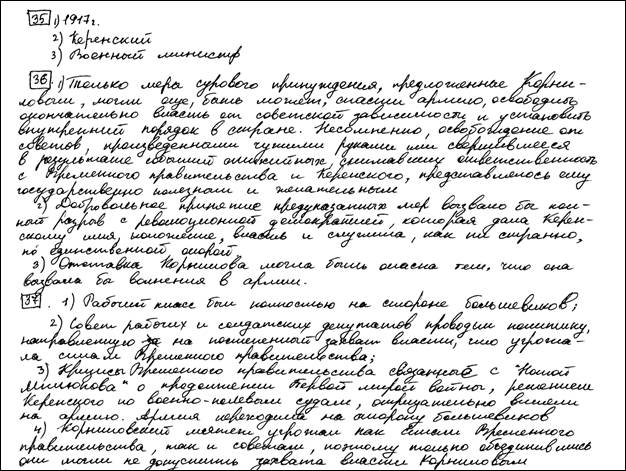 35 1) 1917 г.
2) Керенский
3) Военный министр
36. 1) Только меры сурового принуждения, предложенные Корни-
ловым, могли еще, быть может, спасти армию, освободить
окончательно власть от советской зависимости и установить
внутренний порядок в стране. Несомненно, освобождение от
советов, произведенными чужими руками или свершившееся
в результате событий стихийных, снимавшему ответственность
с Временного правительства и Керенского, представлялось ему
государственно полезным и желательным
2) Добровольное принятие предуказанных мер вызвало бы пол-
ный разрыв с революционной демократией, которая дала Керен-
скому имя, положение, власть и служила, как ни странно,
но единственной опорой.
3) Отставка Корнилова могла быть опасна тем, что она
вызвала бы волнения в армии.
37. 1) Рабочий класс был полностью на стороне большевиков;
2) Совет рабочих и солдатских депутатов проводил политику,
направленную за на постепенный захват власти, что угрожа-
ла силам Временного правительства;
3) Кризисы Временного правительства связанные с "Нотой
Милюкова" о продолжении Первой мировой войны, решением
Керенского по военно-полевым судам, отрицательно влияли
на армию. Армия переходила на сторону большевиков
4) Корниловский мятеж угрожал как силам Временного
правительства, так и советам, поэтому только объединившись
они могли не допустить захвата власти Корниловым